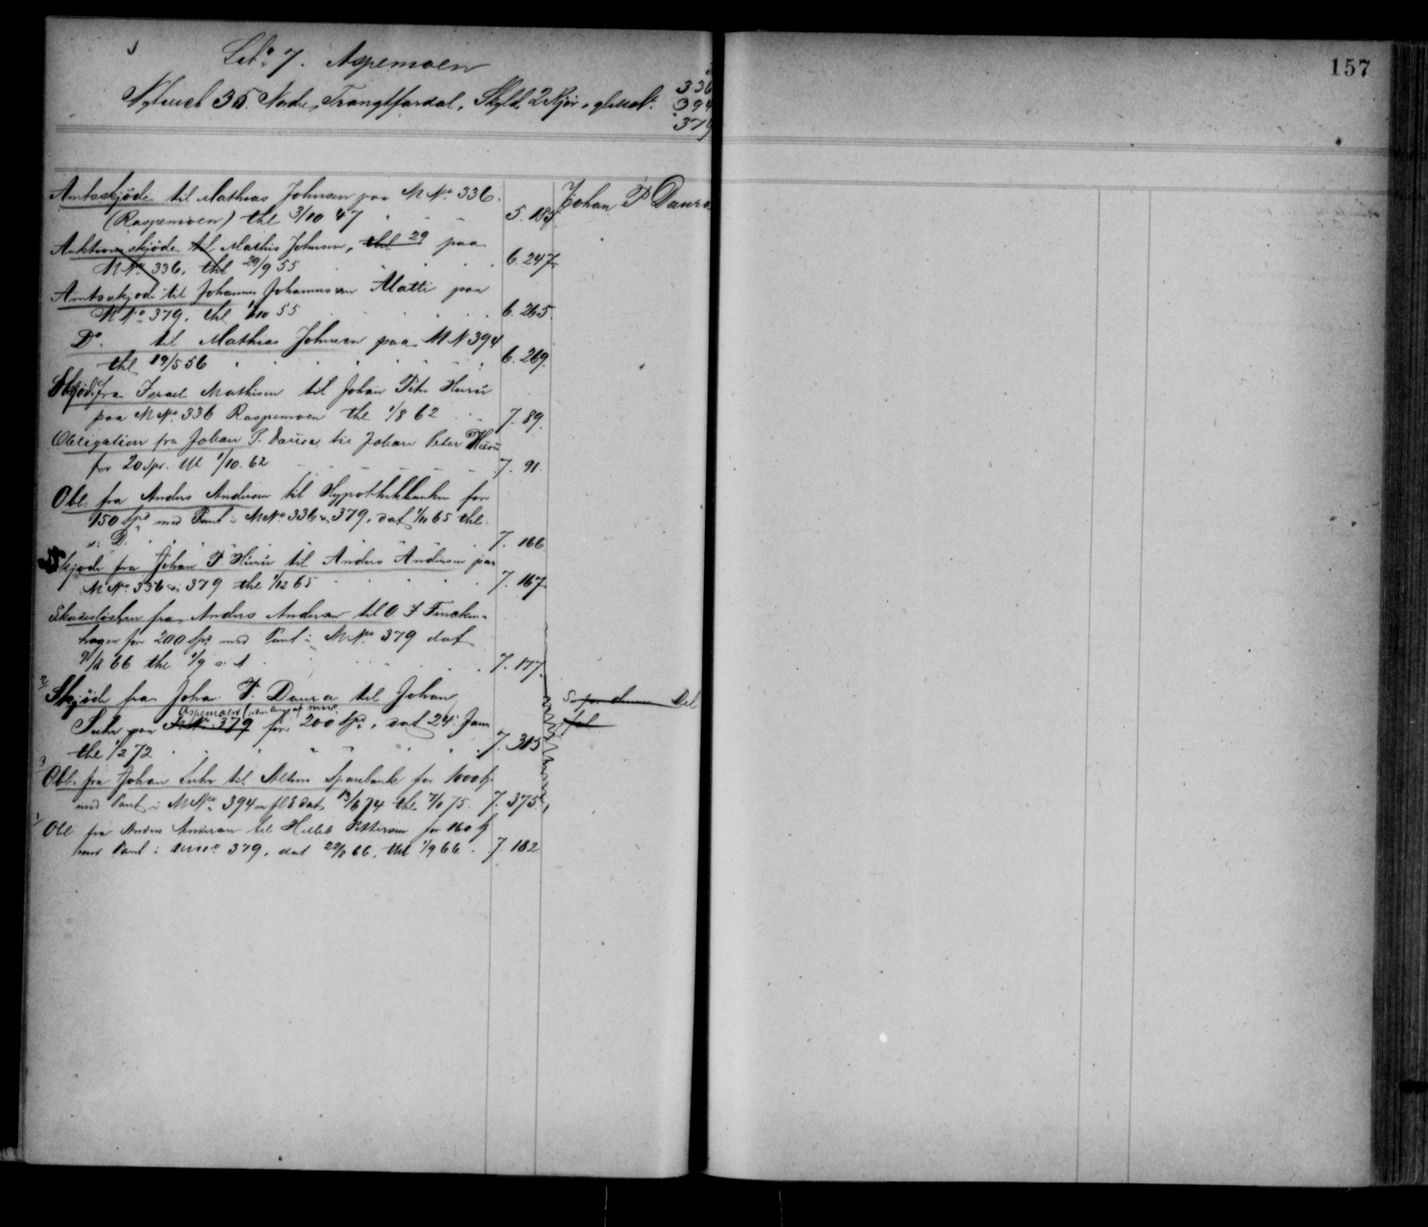 157
Lbº 7. Aspemoen
336
Nylund 35. Nade, Trangtfardal, Skyld 2 Kjør. gl. Mat.
394
379
Amtsskjøde til Mathias Johnsen paa M Nº 336.
(Raspemoen) thl 3/10 47 5. 185.
Johan P Daura
Auktionsskjøde til Mathis Johnsen, thl 29 paa
M Nº 336, thl 29/9 55 6. 247.
Amtsskjøde til Johannes Johannessen Matti paa
M Nº 379, thl 1/10 55 6. 265.
Dº til Mathias Johnsen paa M N 394
thl 19/5 56 6. 269.
Skjøde fra Israel Mathisen til Johan Petr Huru
paa M Nº 336 Raspemoen thl 1/8 62 7. 89.
Obligation fra Johan P. Daura til Johan Peter Huru
for 20 Spd. thl 1/10. 62 7. 91.
Obl. fra Anders Andersen til Hypothekbanken for
150 Spd med Pant i M Nº 336 & 379, dat 1/11 65 thl
s. D. 7. 166
Skjøde fra Johan P. Huru til Anders Andersen paa
M Nº 336 & 379 thl 1/12 65 7. 167
Skadesløsbrev fra Anders Andersen til O J Fincken-
hagen for 200 Spd med Pant i M Nº 379 dat
/8 66 thl 1/9 s. A 7. 177.
2/ Skjøde fra Johan P. Daura til Johan
Suhr paa M Nº 379 for 200 Spd, dat 24. Janr
thl 1/2 72 7. 315
Del
3/ Obl. fra Johan Suhr til Altens Sparebank for 1000
med Pant i M Nº 394 m fl E dat 13/8 74 thl 7/1 75. 7. 375.
1/ Obl fra Anders Andersen til Hellet Pettersen for 160
med Pant i M Nº 379, dat 22/8 66, thl 1/9 66. 7 182